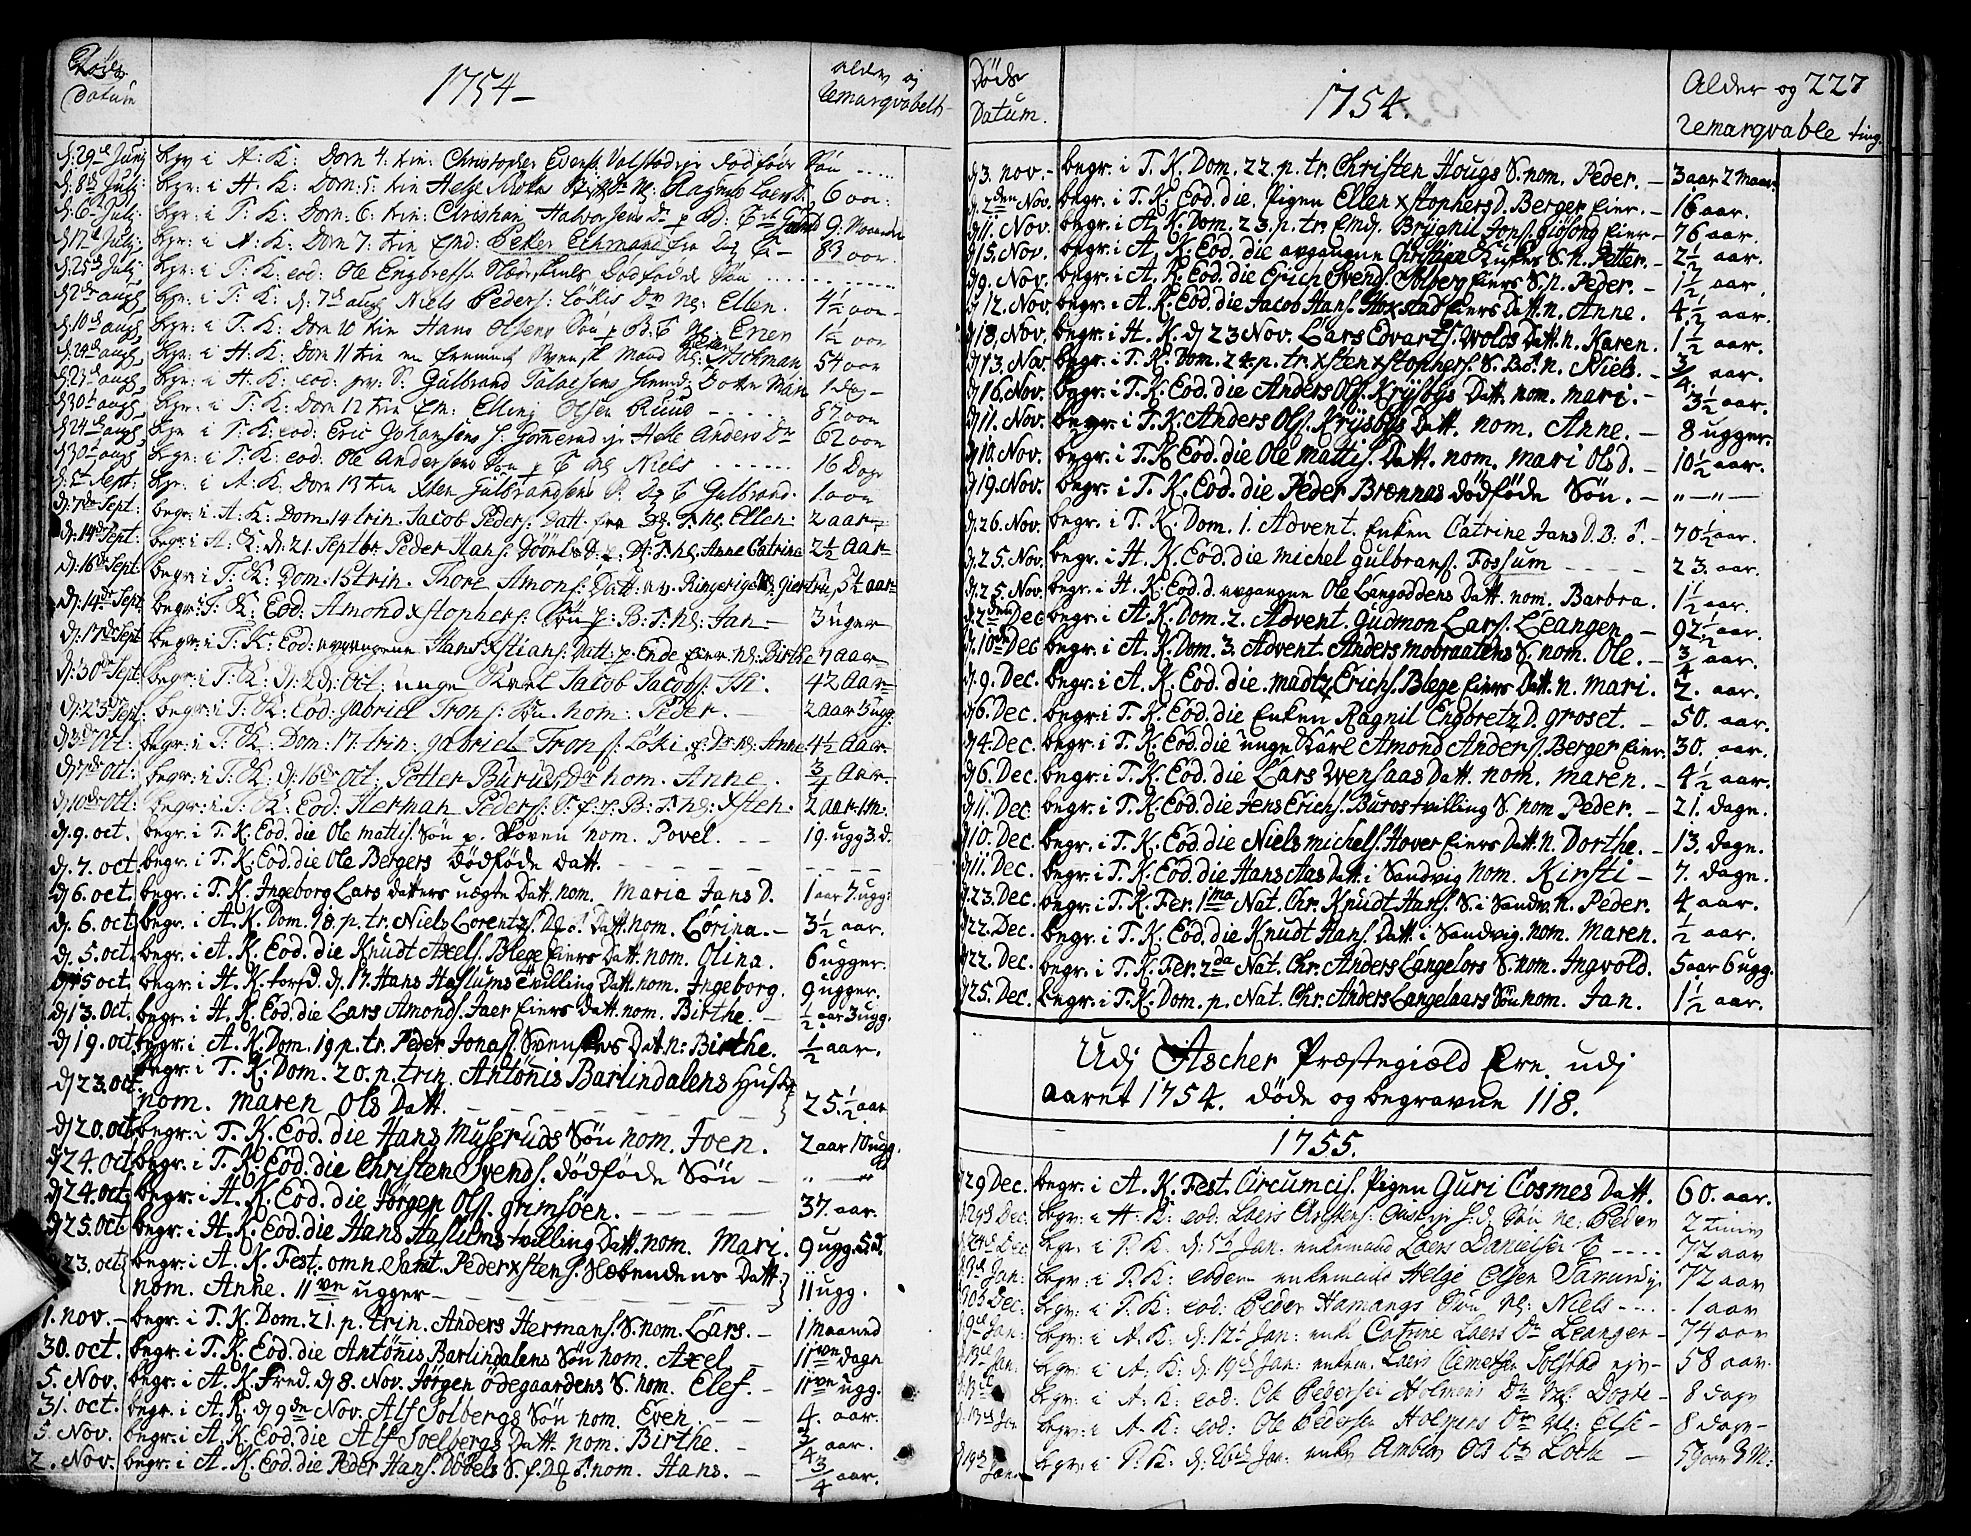 Døde
Datum
1754 –
alder og
Remarqvabelt
d: 29de Junj begr i A: K: Dom 4: trin: Christopher Evens: Valstad ejer dødføde Søn
d: 8de Julj: begr: i H: K: Dom: 5: trin 6 aar:
d: 6te Julj: begr: i T: K: Dom: 6: trin: Christian Halvorsens Dr 9 Maaneder
d 12te Julj: begr: i A: K: Dom 7: trin Emd: Peter Echmand fra 83 aar
d: 25de Julj begr: i T: K: eod: Ole Engbretss: dødføde Søn
d 2den augs begr: i T: K: d: 7de augs Niels Peders: Løkes Dr ne: Ellen. 4½ aar –
d 10de augs begr: i T: K: Dom 10 trin Hans Olsens Søn p B: E 1½ aar
d: 29de augs begr: i H: K: Dom 11 trin en fremmed Svensk Mand 54 aar
d: 23de augs begr: i H: K: eod: Gulbrand 1 dag –
d 30te augs begr: i T: K: Dom 12 trin Em: Elling Olsen Ruud 87 aar
d 24de augs begr i T: K: eod: Eric Johansens Helle Anders Dr 62 aar
d 30te augs begr: i T: K: eod. Ole Andersens Søn p E ne Niels 16 Dage
d: 5te Sept: begr: i A: K: Dom 13 trin Xsten Gulbrandsens S: Gulbrand. 1 aar
d: 7de Sept: begr: i A: K: Dom. 14 trin. Jacob Peders: Datt: fra ne. Ellen: 2 aar
d: 14de Sept: begr: i A: K: d: 21. Septbr. Peder Hans: ne: Anne Catrina 2½ Aar
d: 16de Sept: begr: i T: K: Dom: 15 trin. Thore Amons: Datt: av. Ringerige Giertru, 5½ aar
d: 14de Sept. begr: T: K: Eod: Amond Xstophers: Søn p: B: E ne: Jan – 3 uger
d: 17de Sept begr: i T: K: Eod: avgangne Hans Xstians: Datt: p: Ende Eier ne: Birthe 7 aar
d: 30de Sept: begr: i T: K: d: 2de Oct: unge Karl Jacob Jacobs: 42 Aar
d: 23de Sept: begr: i T: K: Eod: Gabriel Trons: Søn. nom: Peder. – 2 aar 3 ugg.
d 3de Oct: begr: i T: K: Dom: 17. trin: Gabriel Trons: Løki: p: Dr ne: Anne 4½ Aar
d 7de Oct: begr: i T: K: d: 16de Oct: Petter Buruds Dr nom. Anne. ¾ Aar
d: 10de Oct: begr: i T: K: Eod: Herman Peders: S. p. B: ne: Xsten. 2 aar 1 m:
d. 9. oct. begr. i T. K. Eod. die Ole mattis. Søn p. Skoven nom. Povel. 19. ugg 3. d.
d. 7. oct. begr. i T. K. Eod. die Ole Bergers dødføde Datt.
d 6. oct. begr. i T. K. Ingeborg Lars daters uægte Datt. nom. Maria Jans D. 1 aar 7. ugg:
d. 6. oct. begr. i A. K. Dom. 18. p. tr. Niels Lorentzs. Datt. nom. Lorina. – 3½ aar.
d. 5. oct. begr. i A. K. Eod. die Knudt Axels. Blege Eiers Datt. nom. Olina. 6 ugger.
d 15 oct. begr. i H. K. torsd. d. 17. Hans Haslums tvilling Datt. nom. Ingeborg. 9 ugger.
d 13. Oct. begr. i H. K. Eod. die Lars Amons. Jaer Eiers Datt. nom. Birthe. – ½ aar 3 ugg.
d 19. oct. begr. i A. K. Dom. 19 p. tr. Peder Jonas. Svenskes Datt. n: Birthe. ½ aar.
d 23. oct. begr. i T. K. Dom. 20. p. trin. Antönis Barlindalens Hustr
nom. maren Ols Datt. 25.½ aar
d 20. oct. begr. i T. K. Eod. die Hans Musruds Søn nom. Joen. 2 aar 10 ugg.
d 24. oct. begr. i T. K. Eod. die Christen Svends. dødføde Søn – „ — „
d 24. oct. begr. i H. K. Eod. die Jørgen Ols. grimsöen. 37. aar.
d 25. oct begr. i H. K. Eod. die Hans Haslums tvilling Datt. nom. Mari. 9 ugg. 5. d.
d 23. oct. begr. i A. K. Fest. omn. Sanct. Peder Xstens. Slæbendens Datt.
nom. Anne. 11ve ugger 11 ugg.
1. nov. – begr. i T. K. Dom. 21. p. trin. Anders Hermans. S. nom. Lars. – 1 Maaned
30. oct. begr. i T. K. Eod. die Antönis Barlindalens Søn nom. Axel. 11ve dage
5. Nov. begr. i A. K. Fred. d 8. Nov. Jørgen ödegaardens S. nom. Elef. – 11ve ugg.
31. oct. begr. i A. K. d 9de Nov. Alf Solbergs Søn nom. Even. – 4. aar.
5. Nov. begr. i A. K. Eod. die Alf Soelbergs Datt. nom. Birthe. – ¾ aar.
2. Nov. begr. i A. K. Eod. die Peder Hans. Döbels S. nom. Hans. – ¾ aar.
Døde
Datum.
1754.
Alder og 227
remarqvable ting.
d 3. nov. – begr. i T. K. Dom. 22. p. tr. Christen Hougs S. nom. Peder. – 3 aar 2 maan.
d. 2den Nov. begr. i T. K. Eod. die. Pigen Ellen Xstophers D. Berger Eier. – 16 aar.
d 11. Nov. begr. i A. K. Dom. 23. p. tr. Emd. Brÿgnil Jons. giösong Eier – 76 aar.
d 15. Nov. begr. i A. K. Eod. die avgangne Christian Kuskes S. n. Petter. – 2½ aar.
d 9. Nov. begr. i A. K. Eod. die Erich Svends. Eiers S. n. Peder. – 1½ aar
d 12. Nov. begr. i A. K. Eod. die Jacob Hans. Hoxstad Eiers Datt. n. Anne. 4½ aar.
d 18. Nov. begr. i H. K. d 23 Nov. Lars Edvarts. Wolds Datt. n. Karen. 1½ aar.
d 13. Nov. begr. i T. K. Dom. 24. p. tr. Xsten Xstophers. S. Bö. n. Niels. – ¾ aar.
d 16. Nov. begr. i T. K. Eod. die Anders Ols. Krÿsbÿs Datt. nom. mari. – 3½ aar.
d 11. Nov. begr. i T. K. Anders Ols. Krÿsbÿs Datt. nom. Anne. – 8 ugger.
d 10. Nov. begr. i T. K. Eod. die Ole mattis. Datt. nom. mari Ols D. – 10½ aar.
d 19. Nov. begr. i T. K. Eod. die Peder Brennas dödföde Søn. – „ – „ –
d. 26. Nov. begr. i T. K. Dom. 1. Advent. Enken Catrine Jans D. B: E. – 70½ aar.
d. 25. Nov. begr. i H. K. Eod. die michel gulbrans. Fossum 23. aar.
d. 25. Nov. begr. i H. K. Eod. d. avgangne Ole Langoddens Datt. nom. Barbra. 1½ aar.
d. 2den Dec begr. i A. K. Dom. 2. Advent. Gudmon Lars. Leangen – 92½ aar.
d. 10de Dec begr. i A. K. Dom. 3. Advent. Anders mobraatens S. nom. Ole. – ¾ aar.
d. 9. Dec. begr. i A. K. Eod. die. madtz Erichs. Blege Eiers Datt. n. mari. 2. aar.
d 6. Dec. begr. i T. K. Eod. die Enken Ragnil Engbretz D. groset. – 50. aar.
d 4. Dec. begr. i T. K. Eod. die unge Karl Amond Anders. Berger Eier. 30. aar.
d 6. Dec. begr. i T. K. Eod. die Lars Wensaas Datt. nom. maren. – 4½ aar.
d 11. Dec. begr. i T. K. Eod. die Jens Erichs. Buros tvilling S. nom Peder. – 21. dage.
d 10. Dec. begr. i T. K. Eod. die Niels michels. Hover Eiers Datt. n. Dorthe. – 13. dage.
d 11. Dec. begr. i T. K. Eod. die Hans Aas Datt. i Sandvig nom. Kirsti – 7. dage.
d. 23. Dec. begr. i T. K. Fer. 1ma Nat. Chr. Knudt Hans. S. i Sandv. n. Peder. 4 aar.
d 22. Dec. begr. i T. K. Eod. die Knudt Hans. Datt. i Sandvig. nom. maren. ½ aar.
d 22. Dec. begr. i T. K. Fer. 2da Nat. Chr. Anders Langelors S. nom. Ingvold. 5 aar 6 ugg.
d 25. Dec. begr. i T. K. Dom. p. Nat. Chr. Anders Langelaars Søn nom. Jan. 1½ aar.
Udj Ascher Præstegiæld Ere udj
aaret 1754. døde og begravne 118.
1755.
d 29 Dec. begr. i A. K. Fest. Circumcis. Pigen Guri Cosmes Datt. 60. aar.
d. 29de Dec: begr: i H: K: eod: Laers Søn ne: Peder 2 timer
d. 24de Dec begr: i T: K: d: 5te Jan: enkemand Laers Danielsen E 72 aar
d. 1te Jan: begr: i T: K: eodem enkemand Helge Olsen 72 aar
d. 30te Dec: begr: i T: K: eod: Peder Hamangs Søn ne: Niels 1 aar
d. 9de Jan: begr: i A: K: d: 12te Jan: enke Catrine Laers Dr Leanger – 74 aar
d. 13de Jan. begr: i A: K: d: 19de Jan: enkem: Laers Clemetsen Solstad ejer – 58 aar.
begr: i A: K: eod: Ole Pedersen Holmens Dr ne: Dorte – 8 dage
d. 13de Jan begr: i A: K: eod: Ole Pedersen Holmens Dr ne: Else – 8 dage –
d 19de Jan: begr: i T: K: d: 26de Jan: enke Ols Dr – 59 aar 3 M: